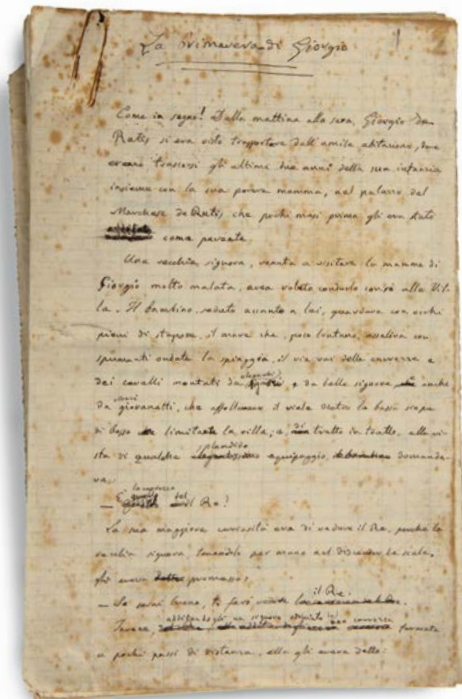 La primavera di Giorgio
Come in sogno! Dalla mattina alla sera, Giorgio de
Ratis si era visto trasportare dall'umile abitazione, dove
erano trascorsi gli ultimi due anni della sua infanzia
insieme con la sua povera mamma, nel palazzo del
Marchese de Ratis, che pochi mesi prima gli era stato
come parente.
Una vecchia signora, venuta a visitare la mamma di
Giorgio molto malata, avea voluto condurlo con sè alla Vil-
la. Il bambino, seduto accanto a lei, guardava con occhi
pieni di stupore, il mare che, poco lontano, assaliva con
spumanti ondate la spiaggia, il via vai delle carrozze e
dei cavalli montati da eleganti, e da belle signore anche
da giovanotti, che affollavano il viale dentro la bassa siepe
di bosso limitante la villa; e, di tratto in tratto, alla vi-
sta di qualche splendido equipaggio, domanda-
va:
— È la carrozza del Re?
La sua maggiore curiosità era di vedere il Re, perchè la
vecchia signora, tenendolo per mano nel discender la scala,
gli aveva promesso:
— Se sarai buono, ti farò vedere il Re.
Invece, additandogli un signore carrozza fermata
a pochi passi di distanza, ella gli aveva detto: